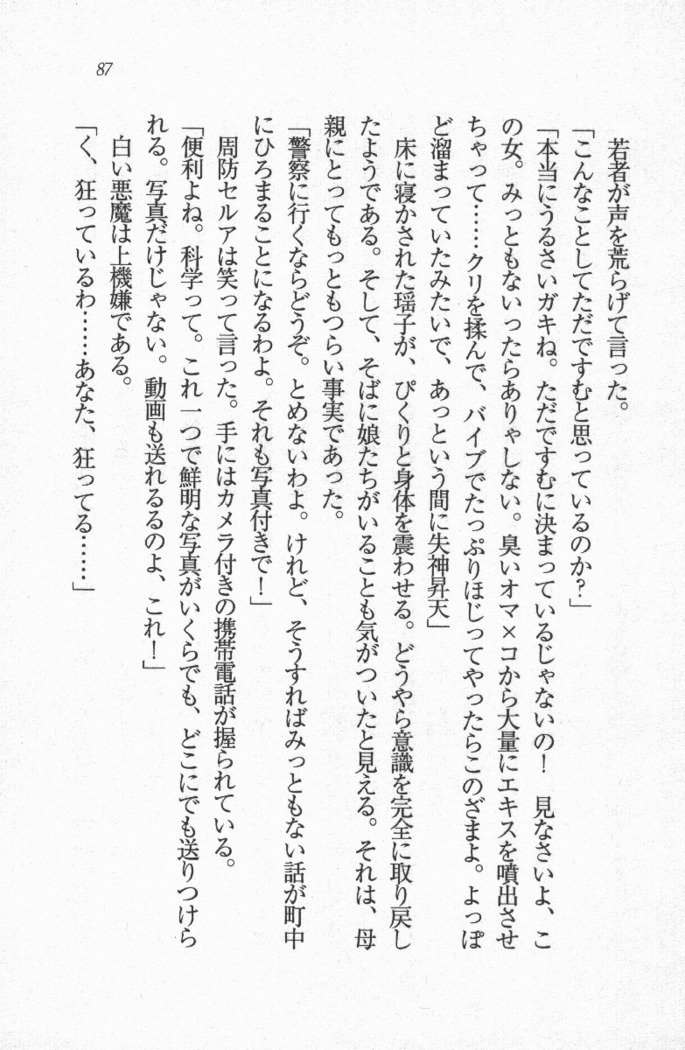 87
若者が声を荒らげて言った。
「こんなことしてただですむと思っているのか？」
「本当にうるさいガキね。ただですむに決まっているじゃないの！　見なさいよ、こ
の女。みっともないったらありゃしない。臭いオマ×コから大量にエキスを噴出させ
ちゃって……クリを揉んで、バイブでたっぷりほじってやったらこのざまよ。よっぽ
ど溜まっていたみたいで、あっという間に失神昇天」
床に寝かされた瑶子が、ぴくりと身体を震わせる。どうやら意識を完全に取り戻し
たようである。そして、そばに娘たちがいることも気がついたと見える。それは、母
親にとってもっともつらい事実であった。
「警察に行くならどうぞ。とめないわよ。けれど、そうすればみっともない話が町中
にひろまることになるわよ。それも写真付きで！」
周防セルアは笑って言った。手にはカメラ付きの携帯電話が握られている。
「便利よね。科学って。これ一つで鮮明な写真がいくらでも、どこにでも送りつけら
れる。写真だけじゃない。動画も送れるるのよ、これ！」
白い悪魔は上機嫌である。
「く、狂っているわ……あなた、狂ってる……」